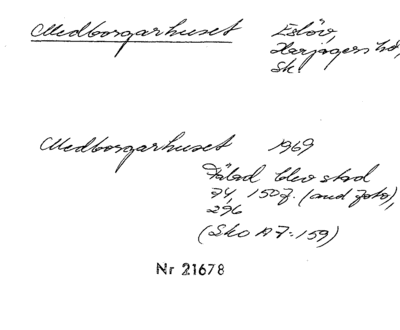 Medborgarhuset Eslöv,
Harjagers hd,
Sk.
Medborgarhuset 1969
Rälad blev stad
74, 150 f. (and foto),
296
(Sko A 7:159)
Nr 21678